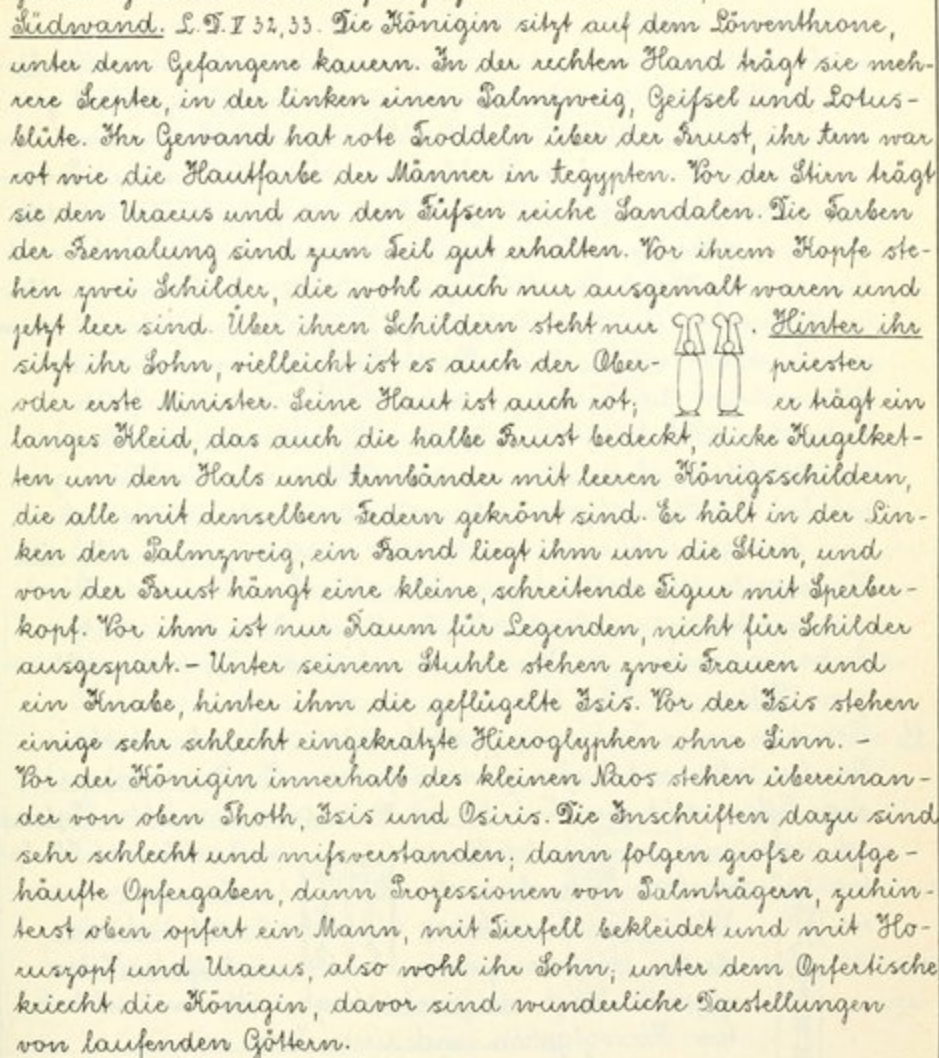 Südwand. L.D.V 32,33. Die Königin sitzt auf dem Löwenthrone,
unter dem Gefangene kauern. In der rechten Hand trägt sie meh-
rere Scepter, in der linken einen Palmzweig, Geifsel und Lotus-
blüte. Ihr Gewand hat rote Troddeln über der Brust, ihr Arm war
rot wie die Hautfarbe der Männer in Aegypten. Vor der Stirn trägt
sie den Uraeus und an den Füfsen reiche Sandalen. Die Farben
der Bemalung sind zum Teil gut erhalten. Vor ihrem Kopfe ste-
hen zwei Schilder, die wohl auch nur ausgemalt waren und
jetzt leer sind. Über ihren Schildern steht nur . Hinter ihr
sitzt ihr Sohn, vielleicht ist es auch der Ober- priester
oder erste Minister. Seine Haut ist auch rot; er trägt ein
langes Kleid, das auch die halbe Brust bedeckt, dicke Kugelket-
ten um den Hals und Armbänder mit leeren Königsschildern,
die alle mit denselben Federn gekrönt sind. Er hält in der Lin-
ken den Palmzweig, ein Band liegt ihm um die Stirn, und
von der Brust hängt eine kleine, schreitende Figur mit Sperber-
kopf. Vor ihm ist nur Raum für Legenden, nicht für Schilder
ausgespart. – Unter seinem Stuhle stehen zwei Frauen und
ein Knabe, hinter ihm die geflügelte Isis. Vor der Isis stehen
einige sehr schlecht eingekratzte Hieroglyphen ohne Sinn. –
Vor der Königin innerhalb des kleinen Naos stehen übereinan-
der von oben Thoth, Isis und Osiris. Die Inschriften dazu sind
sehr schlecht und mifsverstanden; dann folgen grofse aufge-
häufte Opfergaben, dann Prozessionen von Palmträgern, zuhin-
terst oben opfert ein Mann, mit Tierfell bekleidet und mit Ho-
ruszopf und Uraeus, also wohl ihr Sohn; unter dem Opfertische
kriecht die Königin, davor sind wunderliche Darstellungen
von laufenden Göttern.